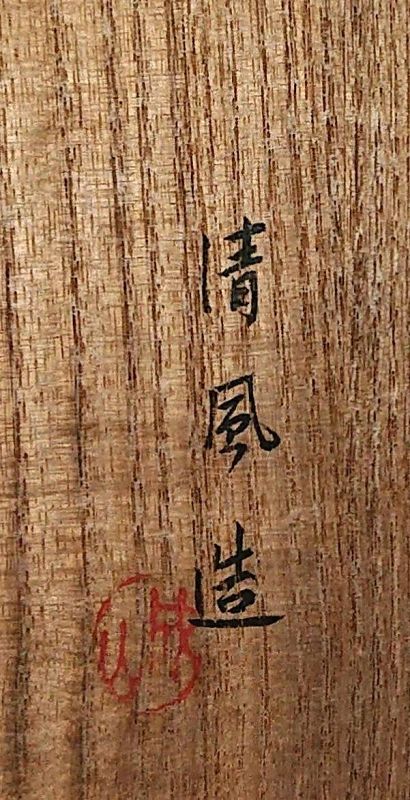 清風造